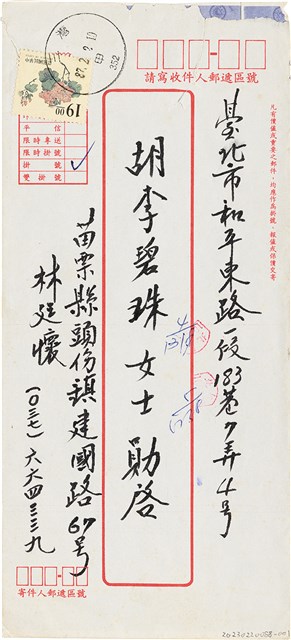 請寫收件人郵遞區號
凡有價值或重要之郵件，均應作為掛號、報值或保價交寄
臺北市和平東路一段183巷7弄4號
胡李碧珠女士 勛啓
苗栗縣頭份鎮建國路67號
林廷懷
(〇三七)六六四三三九
19 00
87. 2. 10
352
平信
限時專送
限時掛號
掛號
雙掛號
✓
寄件人郵遞區號